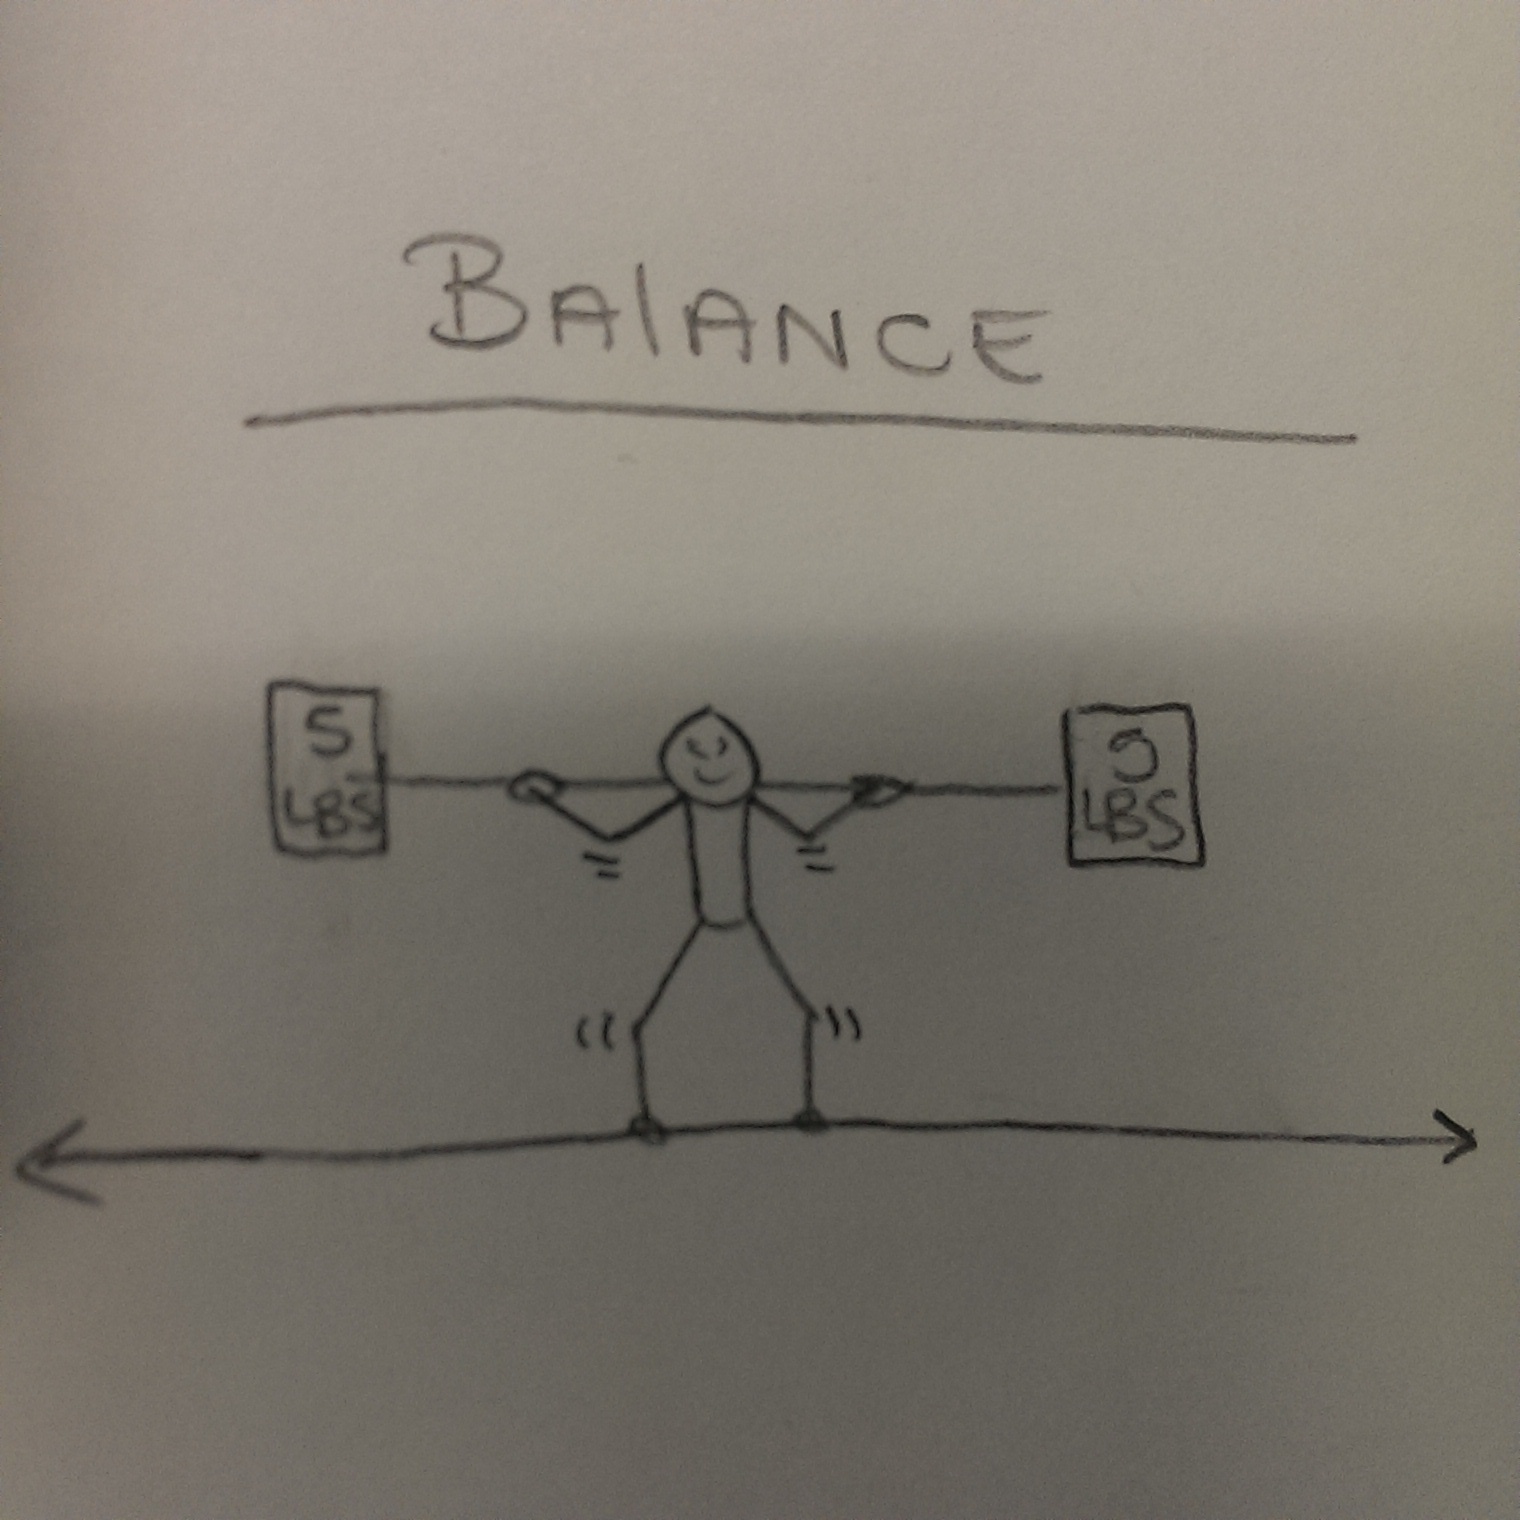 BAlANCE
5
LBS
LBS